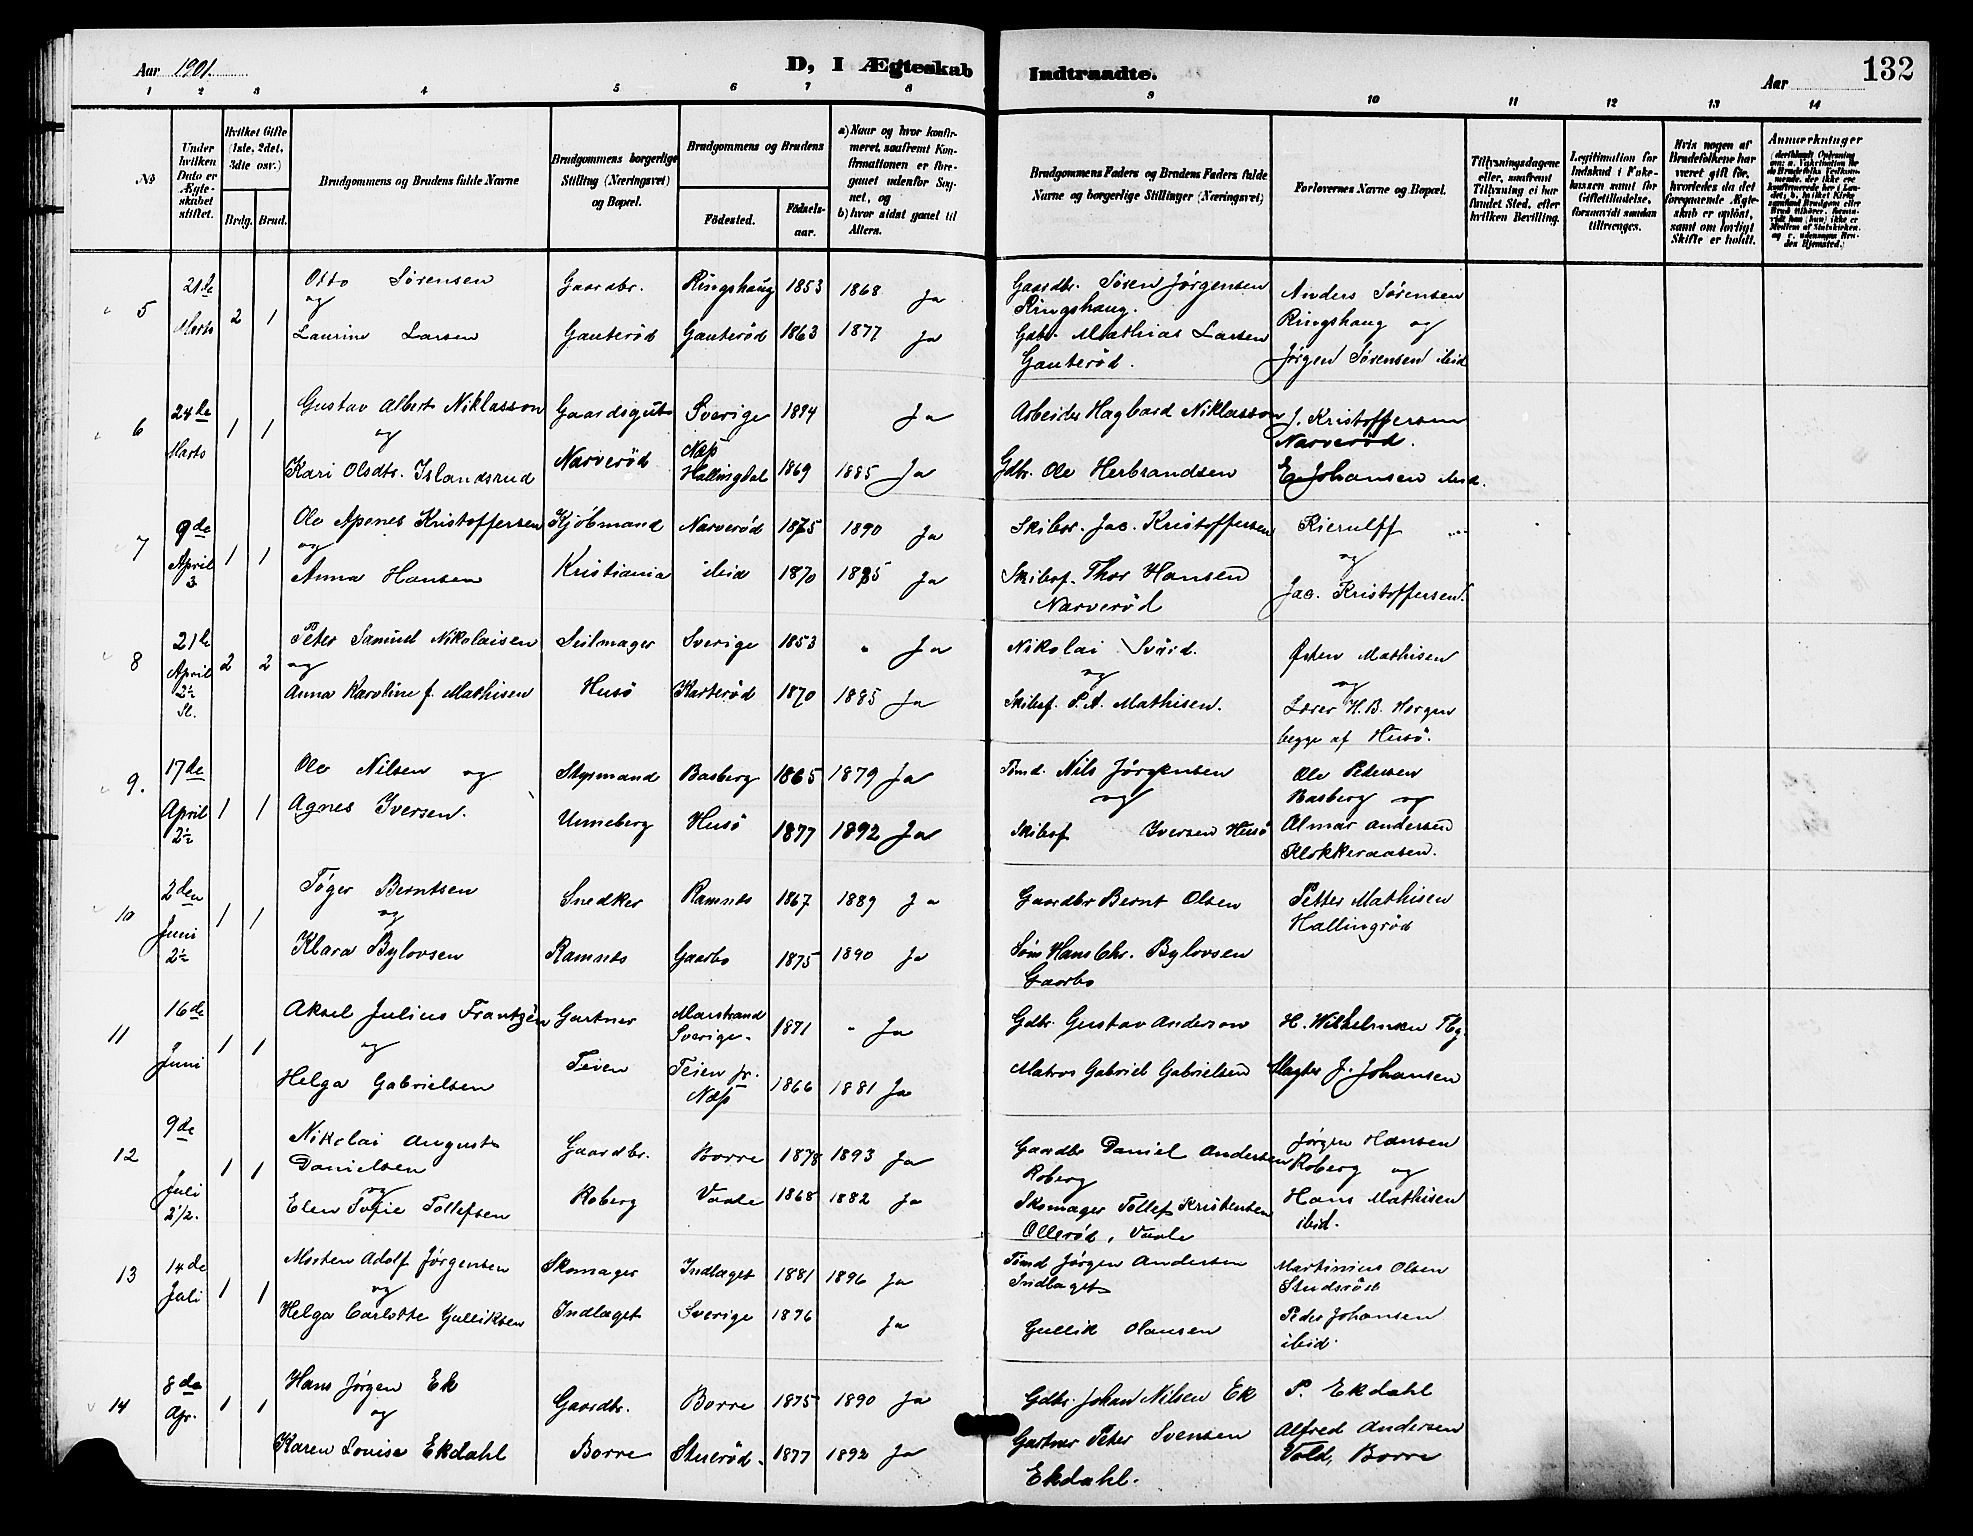 Aar 1901.
D, I Ægteskab Indtraadte.
Aar
132
1 2 3 4 5 6 7 8 9 10 11 12 13 14
No
Under hvilken Dato er Ægteskabet stiftet.
Hvilket Gifte (1ste, 2det, 3die osv.)
Brdg. Brud.
Brudgommens og Brudens fulde Navne
Brudgommens borgerlige Stilling (Næringsvei) og Bopæl.
Brudgommens og Brudens
Fødested.
Fødsels-aar.
a) Naar og hvor konfirmeret, saafremt Konfirmationen er foregaaet udenfor Sognet, og
b) hvor sidst gaaet til Alters.
Brudgommens Faders og Brudens Faders fulde Navne og borgerlige Stillinger (Næringsvei)
Forlovernes Navne og Bopæl.
Tillysningsdagene eller, saafremt Tillysning ei har fundet Sted, efter hvilken Bevilling.
Legitimation for Indskud i Enkekassen samt for Giftetilladelse, forsaavidt saadan tiltrænges.
Hvis nogen af Brudefolkene har været gift før, hvorledes da det foregaaende Ægteskab er opløst, samt om lovligt Skifte er holdt.
Anmærkninger
5 21de Marts 2 1
Otto Sørensen
og
Laurine Larsen
Gaardbr. Gauterød
Ringshaug 1853 1868 Ja
Gauterød 1863 1877 Ja
Gaardbr. Søren Jørgensen
Ringshaug.
Gdbr. Mathias Larsen
Gauterød.
Anders Sørensen
Ringshaug og
Jørgen Sørensen ibid
6 24de Marts 1 1
Gustav Albert Niklasson
og
Kari Olsdtr. Islandsrud
Gaardsgut Narverød
Sverige 1894 Ja
Næs Hallingdal 1869 1885 Ja
Arbeider Hagbard Niklasson
Gdbr. Ole Herbrandsen
J. Kristoffersen
Narverød.
E. Johansen ibid.
7 9de April 3 1 1
Ole Apenes Kristoffersen
og
Anna Hansen
Kjøbmand Kristiania
Narverød 1875 1890 Ja
ibid 1870 1885 Ja
Skibsr. Jac. Kristoffersen
Skibsf. Thor Hansen
Narverød
Kierulff
og
Jac. Kristoffersen.
8 21de April 2½ Sl. 2 2
Peter Samuel Nikolaisen
og
Anna Karoline f. Mathisen
Seilmager Husø
Sverige 1853 " Ja
Karterød 1870 1885 Ja
Nikolai Svärd.
og
Skibsf. P. A. Mathisen.
Østen Mathisen
og
Lærer H. B. Horgen
begge af Husø.
9. 17de April 2½ 1 1
Ole Nilsen og
Agnes Iversen.
Styrmand Unneberg
Basberg 1865 1879 Ja
Husø 1877 1892 Ja
Tømd. Nils Jørgensen
og
Skibsf Iversen Husø
Ole Pedersen
Basberg og
Almar Andersen
Klokkeraasen.
10 2den Juni 2½ 1 1
Tøger Berntsen
og
Klara Bylovsen
Snedker Ramnes
Ramnes 1867 1889 Ja
Gaarbo 1875 1890 Ja
Gaardbr Bernt Olsen
Tøm Hans Chr. Bylovsen
Gaarbo
Petter Mathisen
Hallingrød
11 16de Juni 1 1
Aksel Julius Frantzén
og
Helga Gabrielsen
Gartner Teien
Marstrand Sverige. 1871 " Ja
Teien pr. Næs 1866 1881 Ja
Gdbr. Gustav Anderson
Matros Gabriel Gabrielsen
H. Wilhelmsen Tbg.
J. Johansen
12 9de Juli 2 1/2. 1 1
Nikolai August
Danielsen
og
Elen Sofie Tollefsen
Gaardbr. Roberg
Borre 1878 1893 Ja
Vaale 1868 1882 Ja
Gaardbr Daniel Andersen
Roberg
Skomager Tollef Kristensen
Ollerød, Vaale
Jørgen Hansen
Roberg og
Hans Mathisen
ibid.
13 14de Juli 1 1
Morten Adolf Jørgensen
og
Helga Carlotte Gulliksen
Skomager Indlaget
Indlaget 1881 1896 Ja
Sverige 1876 Ja
Tømd Jørgen Andersen
Indlaget
Gullik Olausen
Martinius Olsen
Studsrød
Peder Johansen
ibid.
14 8de Apr. 1 1
Hans Jørgen Ek
og
Karen Louise Ekdahl
Gaardbr. Borre
Borre 1875 1890 Ja
Stuerød. 1877 1892 Ja
Gdbr. Johan Nilsen Ek
Gartner Peter Svensen
Ekdahl.
P. Ekdahl
Alfred Andersen
Vold, Borre